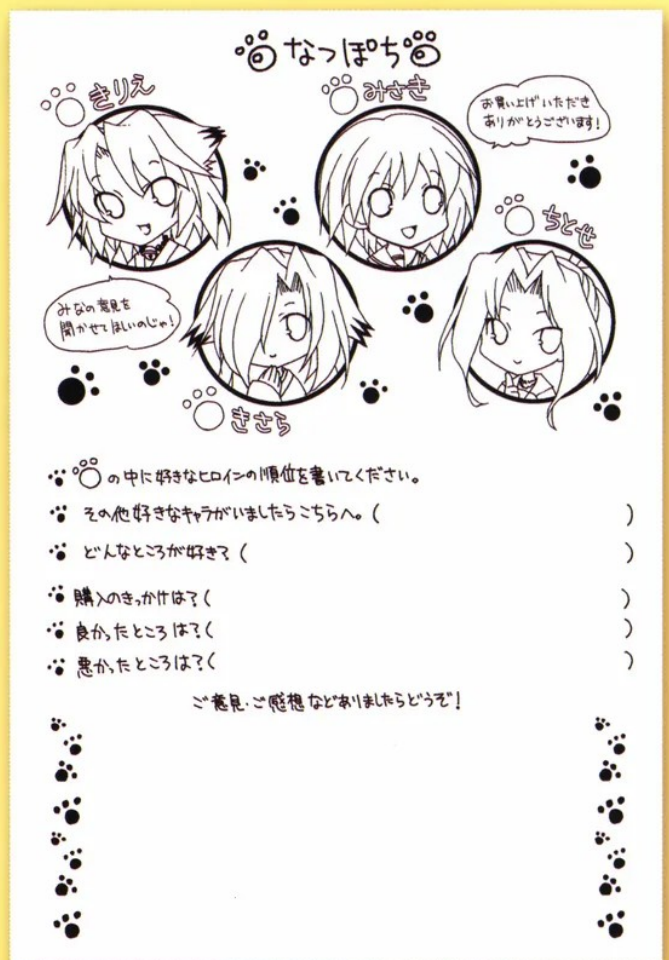 なつぽち
きりえ
みさき
お買い上げいただき
ありがとうございます!
ちとせ
みなの意見を
聞かせてほしいのじゃ!
きさら
の中に好きなヒロインの順位を書いてください。
その他好きなキャラがいましたらこちらへ。( )
どんなところが好き?( )
購入のきっかけは?( )
良かったところは?( )
悪かったところは?( )
ご意見・ご感想などありましたらどうぞ!